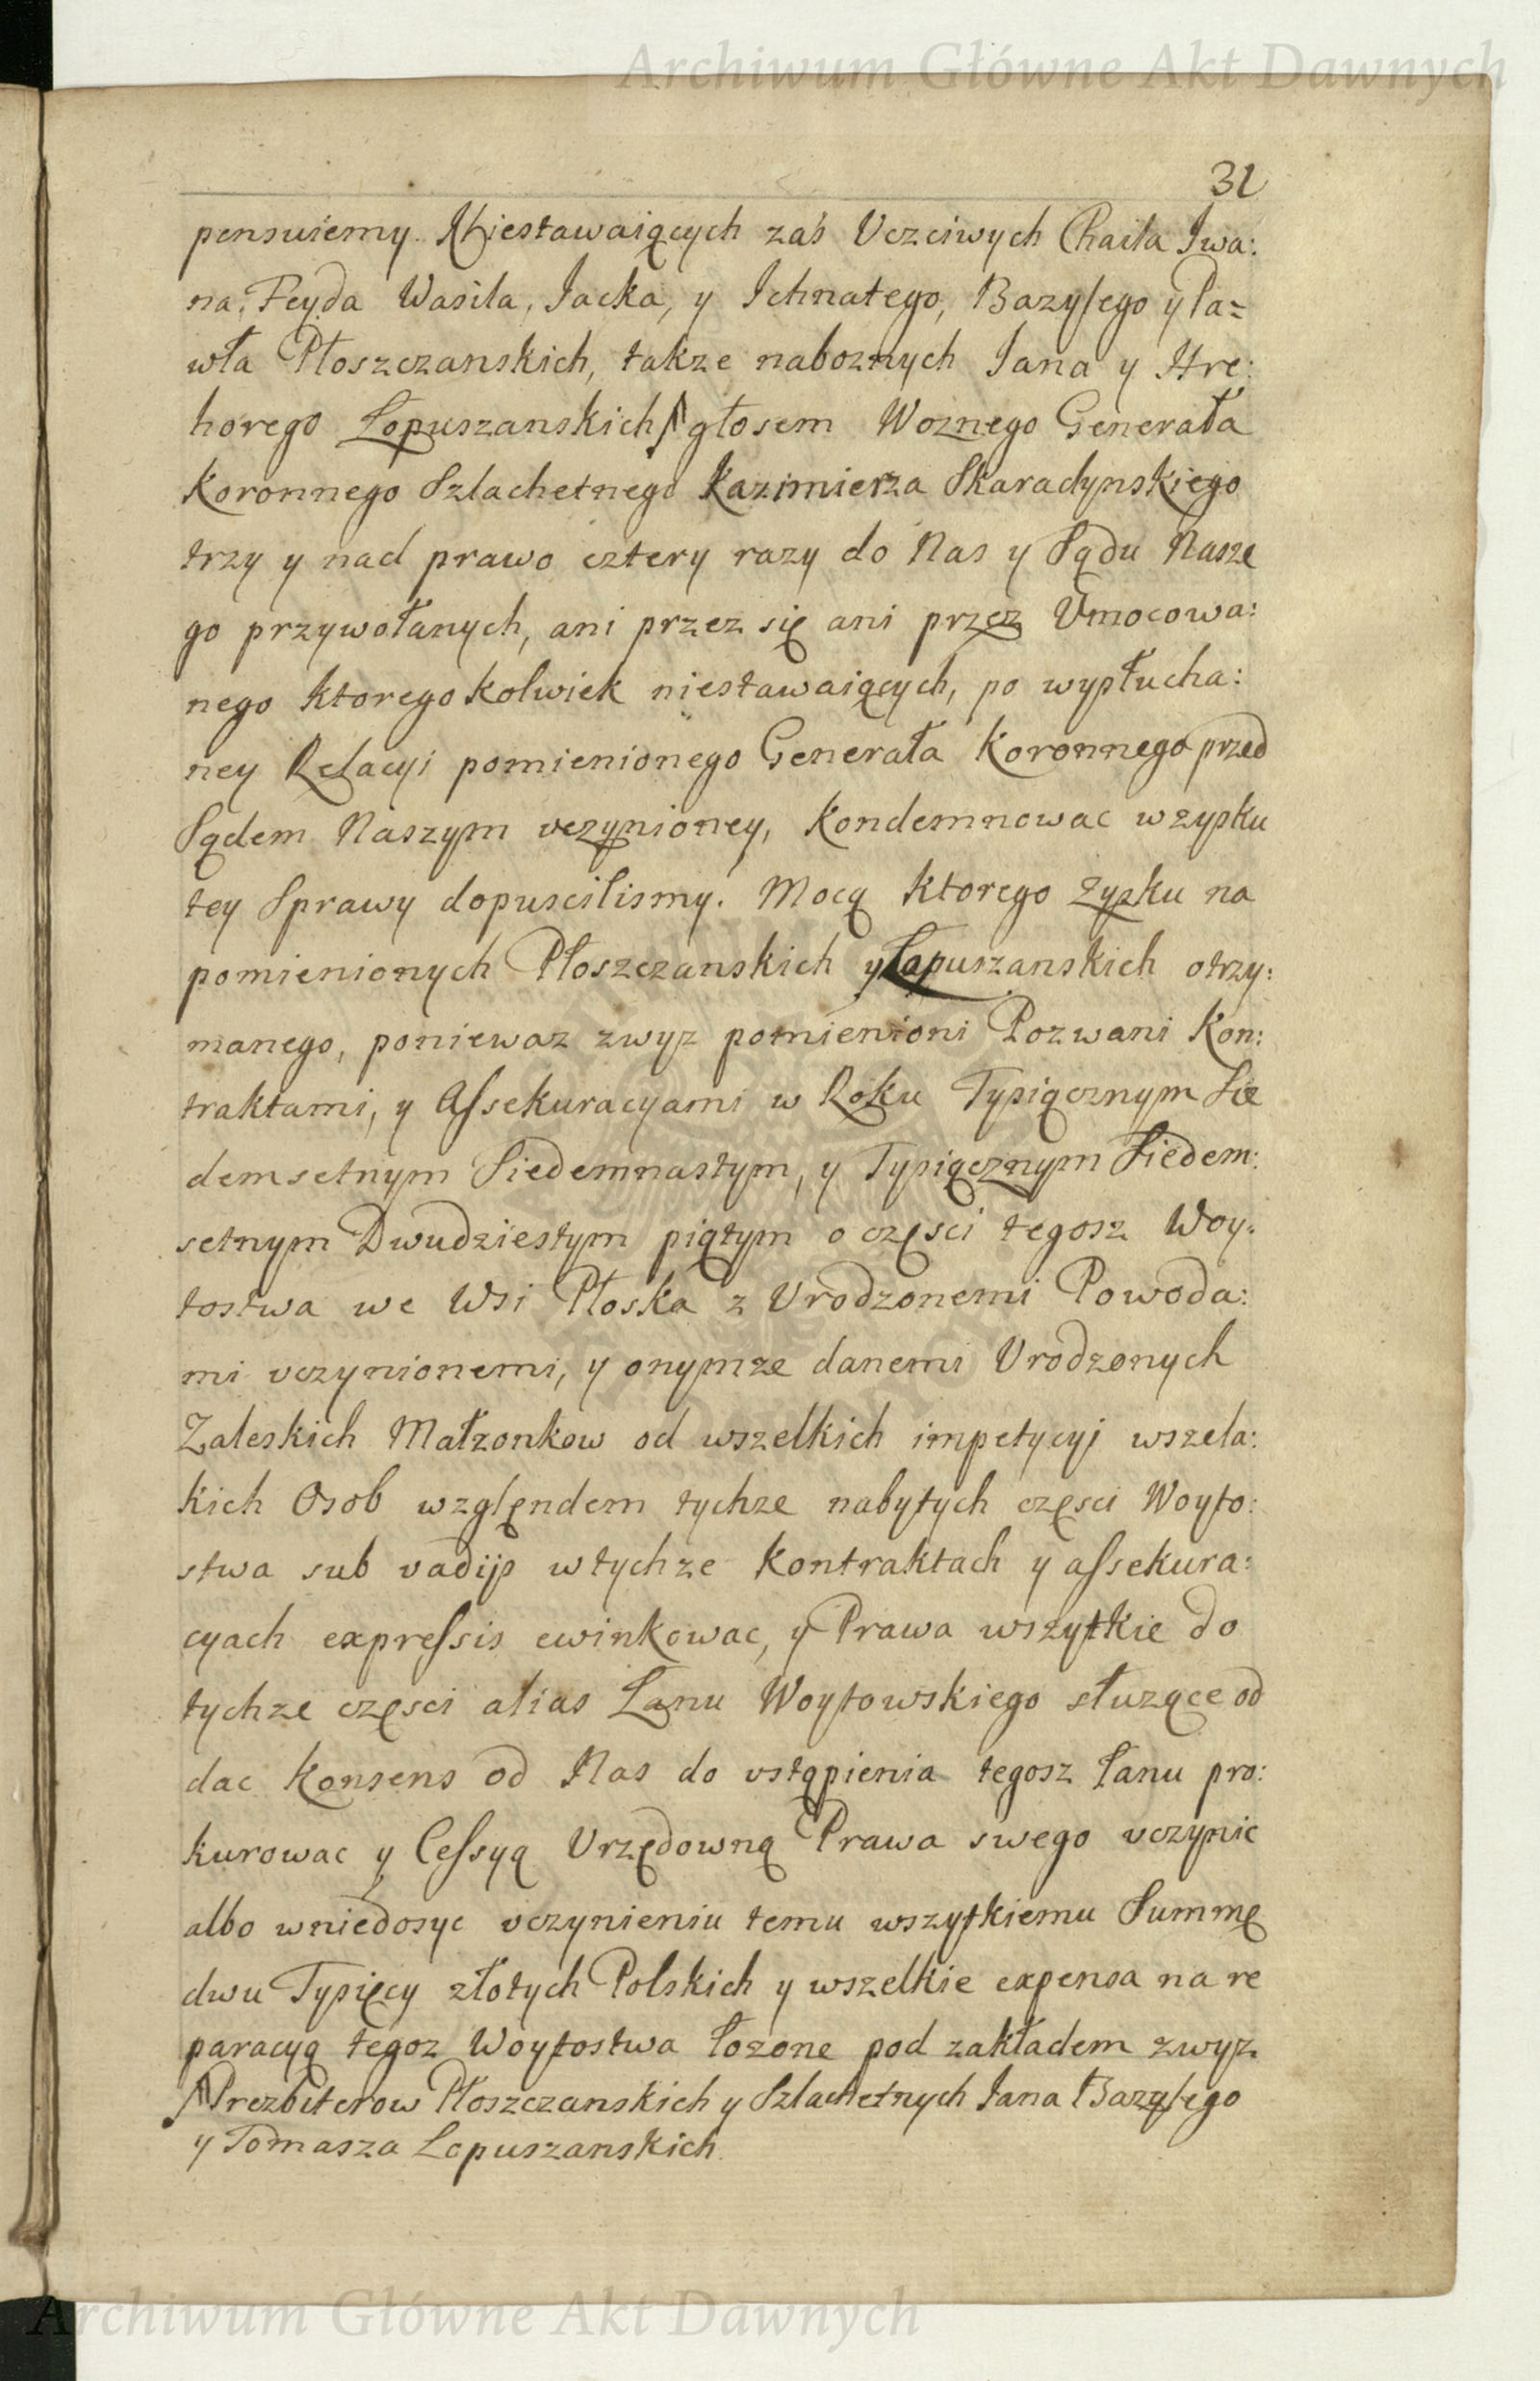 Archiwum Główne Akt Dawnych
31
pensuiemy. Niestawaiących zaś Vczciwych Chaila Iwa:
na, Feyda Wasila, Iacka, y Ichnatego, Bazylego y Pa=
wła Płoszczanskich, takze naboznych Iana y Hre:
horego Łopuszanskich /\ głosem Woznego Generała
Koronnego Szlachetnego Kazimierza Skaradynskiego
trzy y nad prawo cztery razy do Nas y Sądu Nasze
go przywołanych, ani przez się ani przez Vmocowa:
nego ktorego kolwiek niestawaiących, po wysłucha:
ney Relacyi pomienionego Generała Koronnego przed
Sądem Naszym vczynioney, kondemnowac w zysku
tey Sprawy dopuscilismy. Mocą ktorego Zysku na
pomienionych Płoszczanskich y Łopuszanskich otrzy:
manego, poniewaz zwyz pomienioni Pozwani Kon:
traktami, y Assekuracyami w Roku Tysiącznym Sie
demsetnym Siedemnastym, y Tysiącznym Siedem:
setnym Dwudziestym piątym o częsci tegosz Woy:
tostwa we Wsi Płoska z Vrodzonemi Powoda:
mi vczynionemi, y onymze danemi Vrodzonych
Zaleskich Małzonkow od wszelkich impetycyi wszela:
kich Osob wzglęndem tychze nabytych częsci Woyto:
stwa sub vadijs w tychze Kontraktach y assekura:
cyach expressis ewinkowac, y Prawa wszytkie do
tychze częsci alias Łanu Woytowskiego słuzące od
dac konsens od Nas do vstąpienia tegosz łanu pro:
kurowac y Cessyą Vrzędowną Prawa swego vczynic
albo wniedosyc vczynieniu temu wszytkiemu Summę
dwu Tysięcy złotych Polskich y wszelkie expensa na re
paracyą tegoz Woytostwa łozone pod zakładem zwyz
/\ Prezbiterow Płoszczanskich y Szlachetnych Iana Bazylego
y Tomasza Łopuszanskich.
Archiwum Główne Akt Dawnych